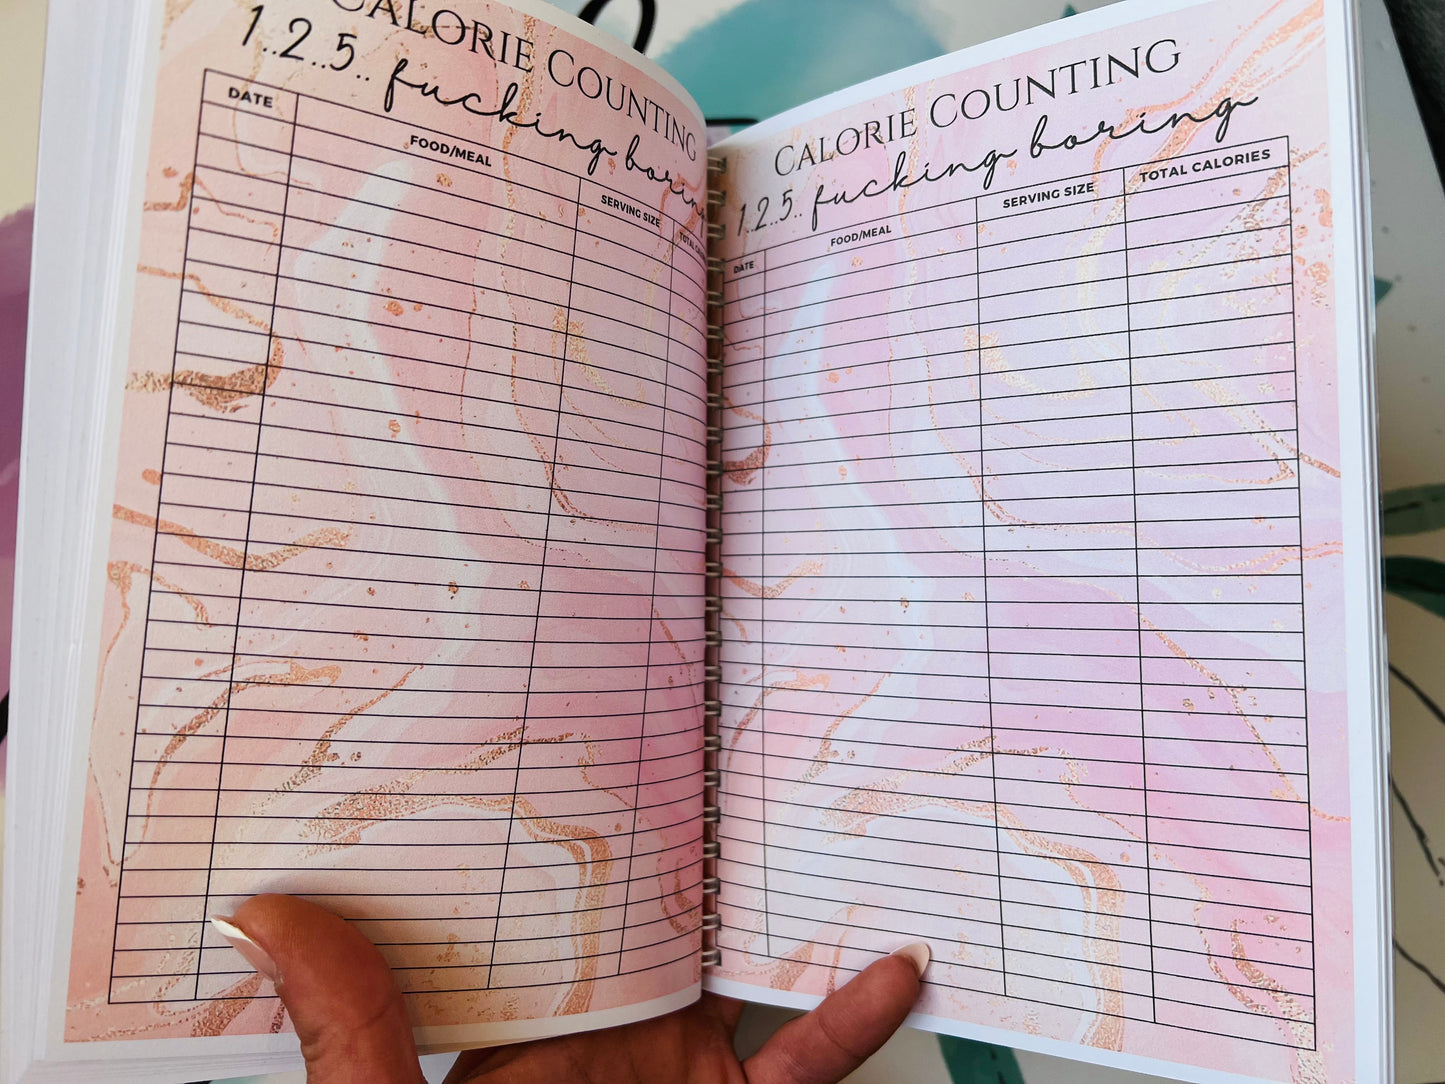 CALORIE COUNTING
1..2..5.. fucking boring
DATE FOOD/MEAL SERVING SIZE TOTAL
CALORIE COUNTING
1..2..5.. fucking boring
DATE FOOD/MEAL SERVING SIZE TOTAL CALORIES